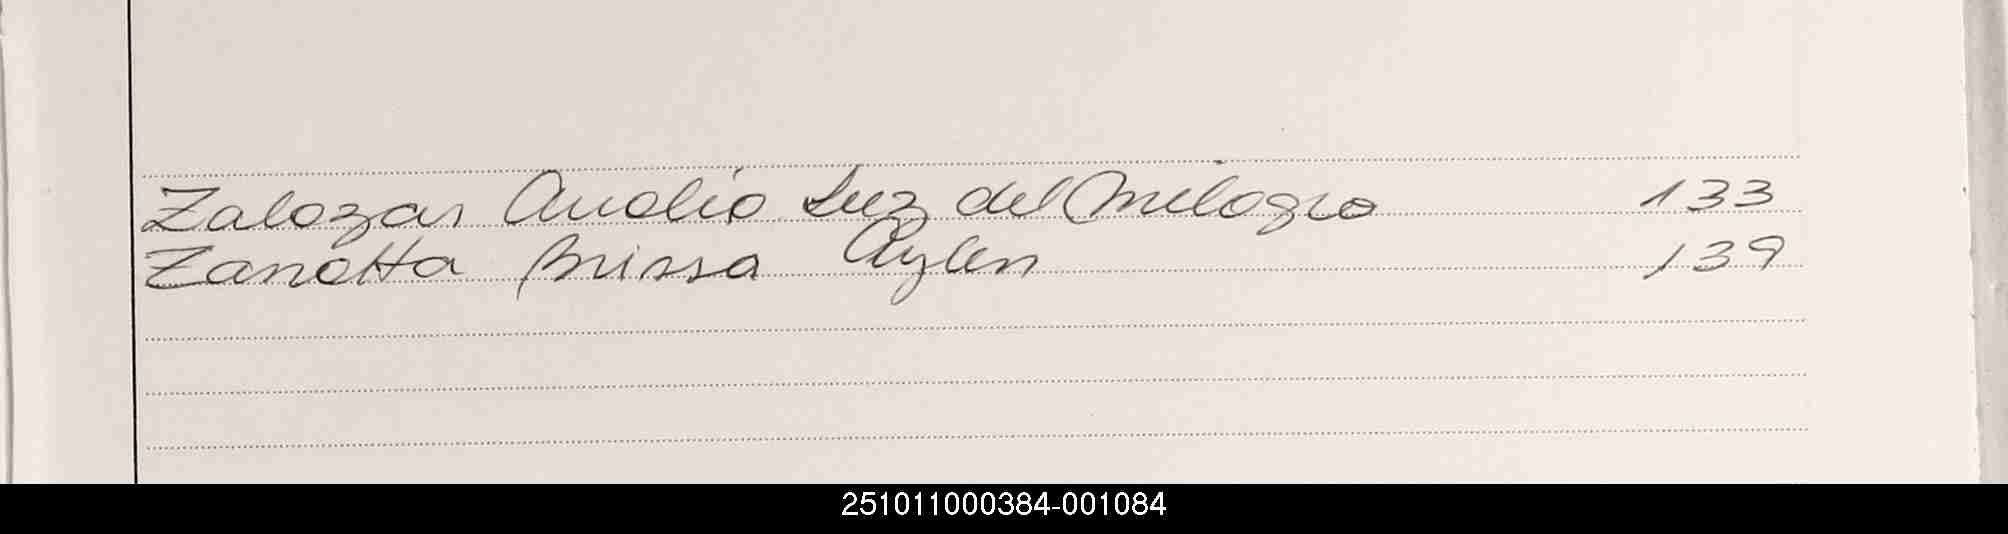 Zalazar Analia Luz del Milagro 133
Zanotta Brissa Aylen 139
251011000384-001084